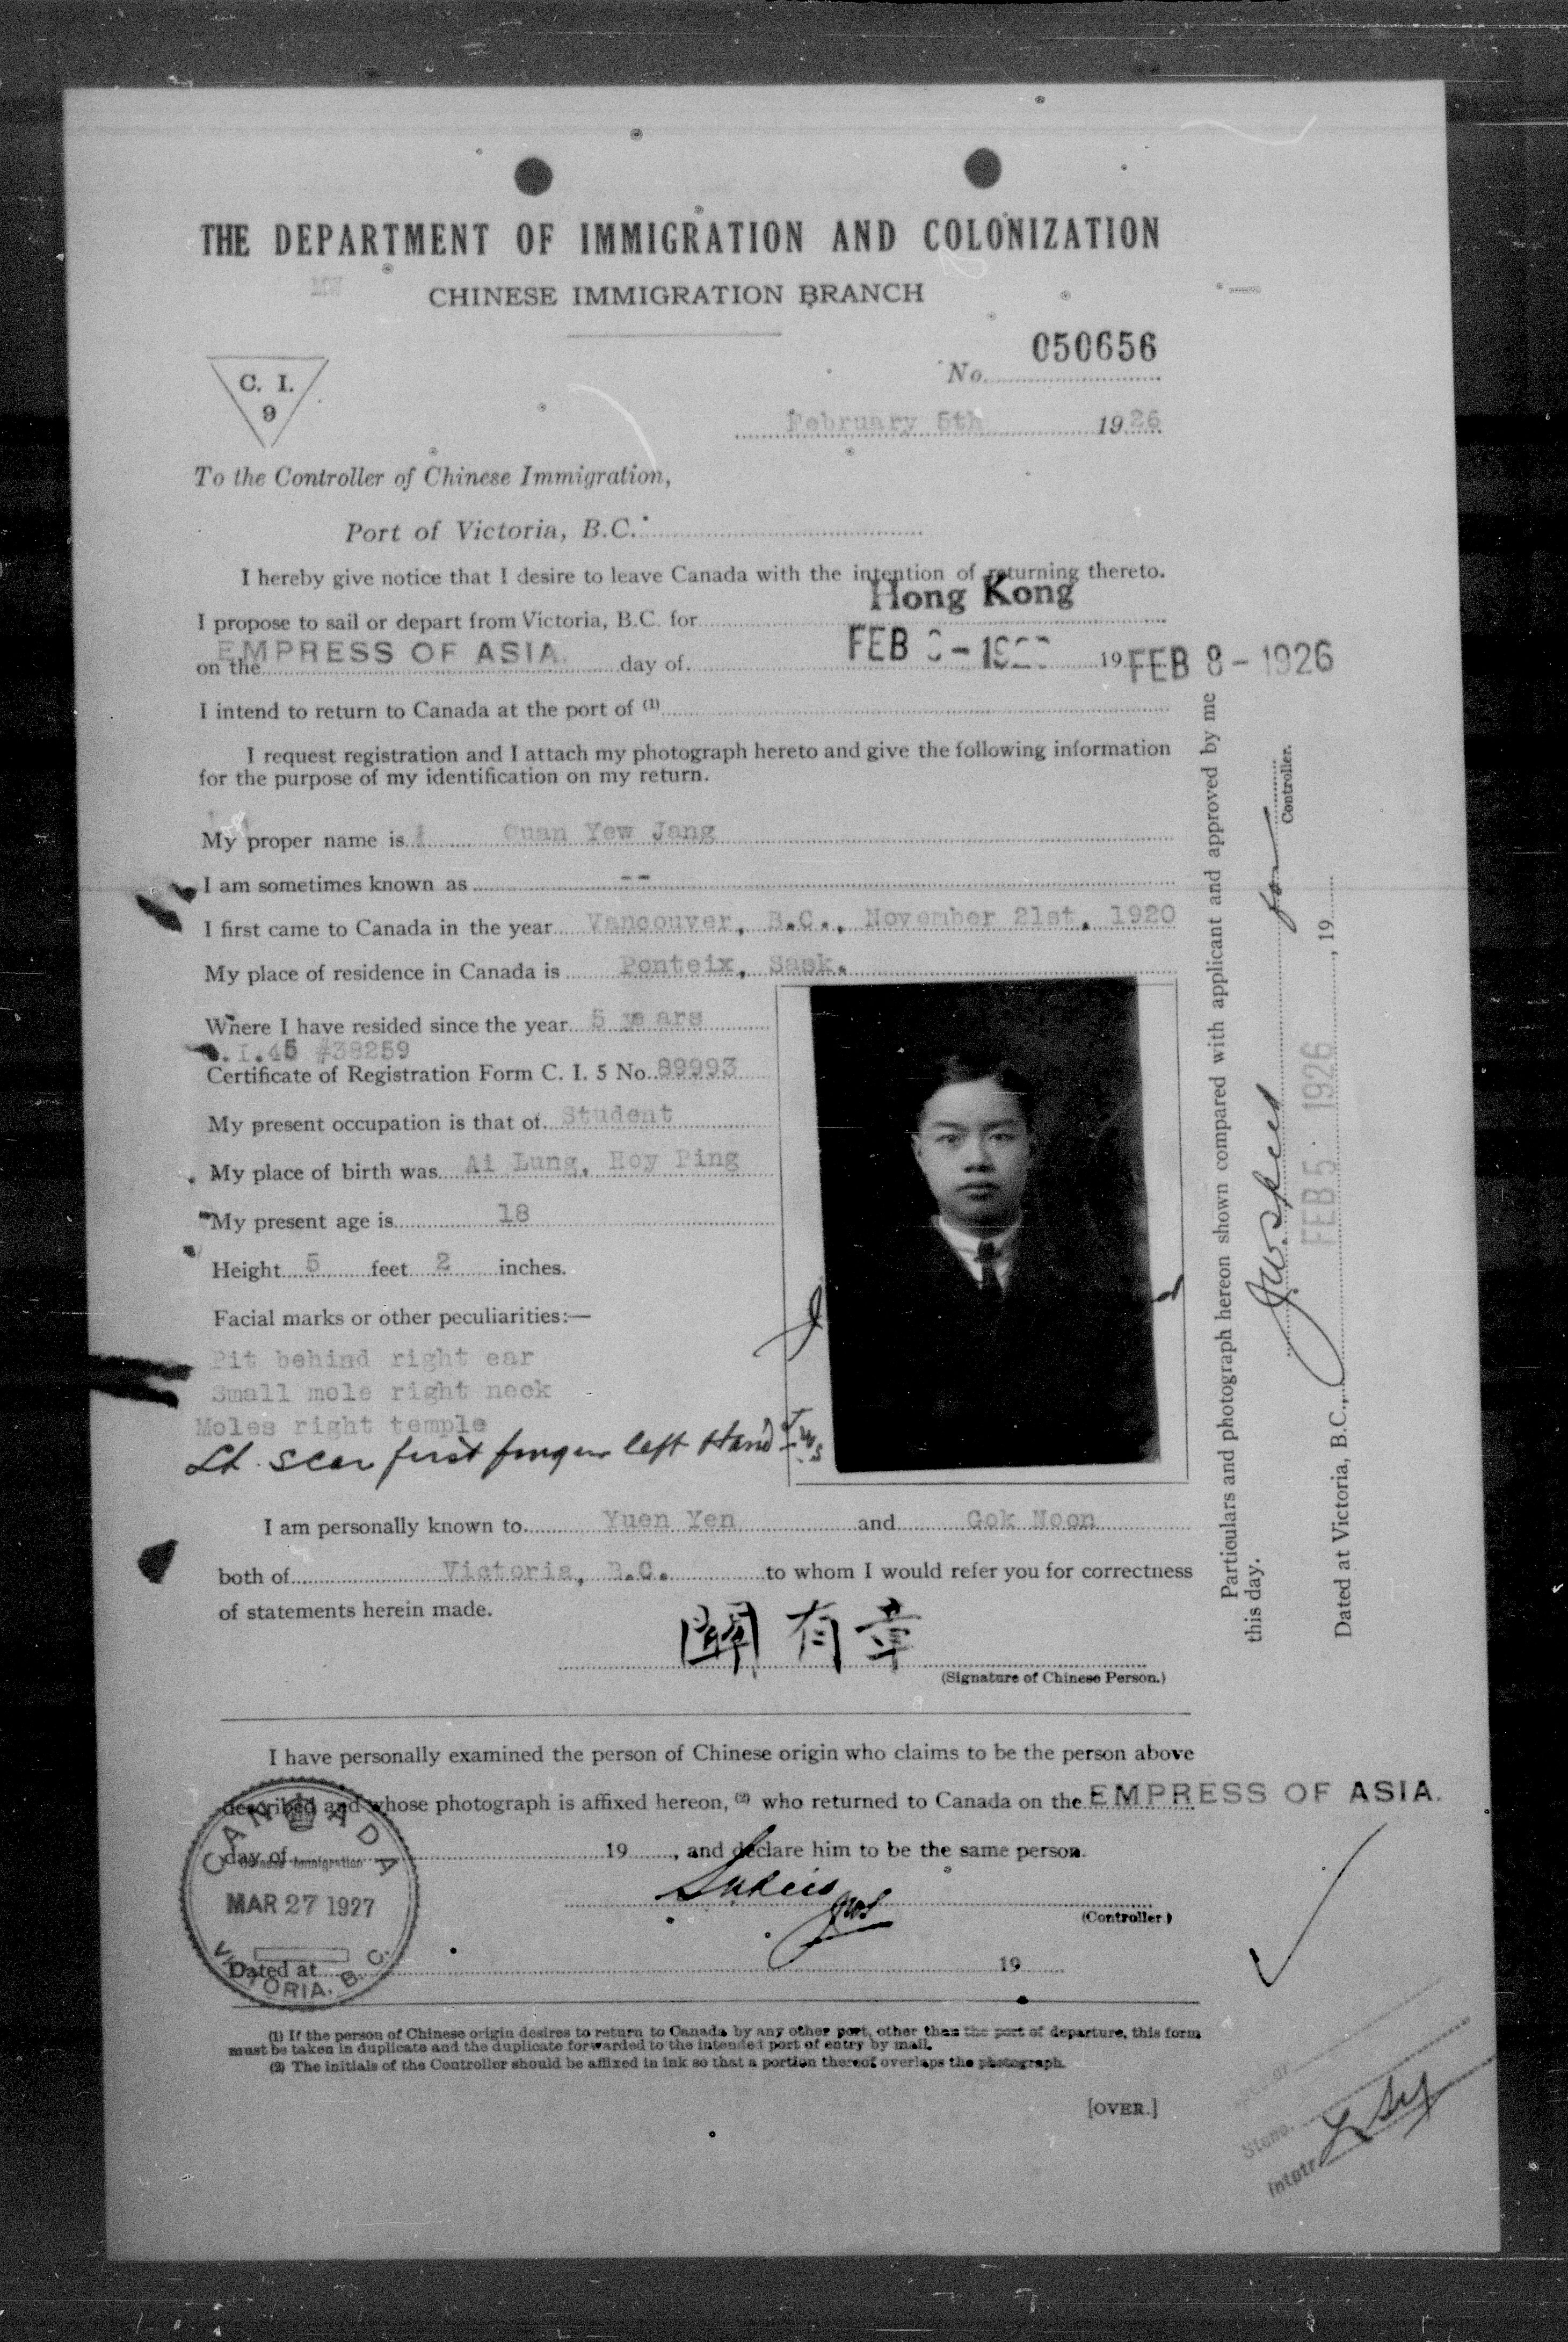 THE DEPARTMENT OF IMMIGRATION AND COLONIZATION
CHINESE IMMIGRATION BRANCH
C. I.
9
No. 050656
February 5th 1926
To the Controller of Chinese Immigration,
Port of Victoria, B.C.
I hereby give notice that I desire to leave Canada with the intention of returning thereto.
I propose to sail or depart from Victoria, B.C. for Hong Kong
on the EMPRESS OF ASIA. day of FEB 19 FEB 8 - 1926
I intend to return to Canada at the port of (1)
I request registration and I attach my photograph hereto and give the following information
for the purpose of my identification on my return.
My proper name is Quan Yew Jang
I am sometimes known as --
I first came to Canada in the year Vancouver, B.C., November 21st, 1920
My place of residence in Canada is Ponteix, Sask.
Where I have resided since the year 5 years
C.I.45 #38259
Certificate of Registration Form C. I. 5 No. 89993
My present occupation is that of Student
My place of birth was Ai Lung, Hoy Ping
My present age is 18
Height 5 feet 2 inches.
Facial marks or other peculiarities:—
Pit behind right ear
Small mole right neck
Moles right temple
Lt. scar first finger left Hand JWS
I am personally known to Yuen Yen and Gok Noon
both of Victoria, B.C. to whom I would refer you for correctness
of statements herein made.
關有章
(Signature of Chinese Person.)
Particulars and photograph hereon shown compared with applicant and approved by me
this day.
for Controller.
Dated at Victoria, B.C., FEB 5 1926, 19
I have personally examined the person of Chinese origin who claims to be the person above
described and whose photograph is affixed hereon, (2) who returned to Canada on the EMPRESS OF ASIA.
day of 19, and declare him to be the same person.
(Controller)
Dated at 19
CANADA
Chinese Immigration
MAR 27 1927
VICTORIA. B. C.
(1) If the person of Chinese origin desires to return to Canada by any other port, other than the port of departure, this form
must be taken in duplicate and the duplicate forwarded to the intended port of entry by mail.
(2) The initials of the Controller should be affixed in ink so that a portion thereof overlaps the photograph.
[OVER.]
Steno.
Intptr.